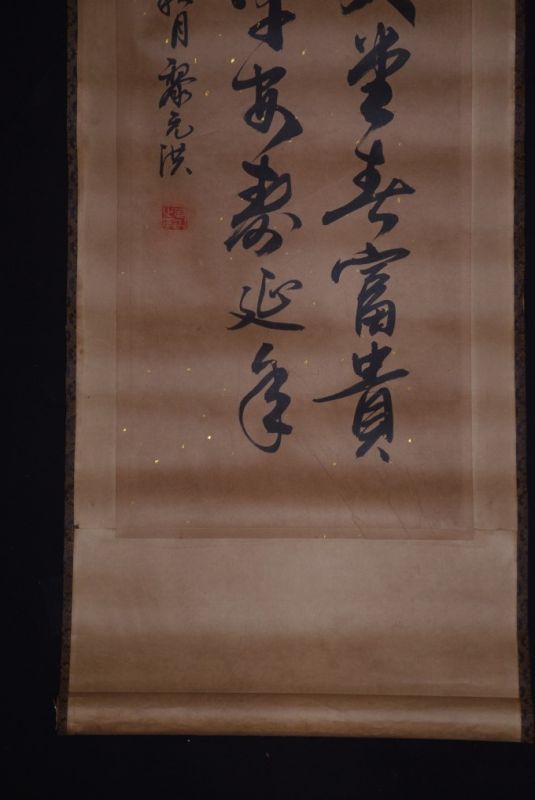 堂春富貴
安壽延年
月黎元洪